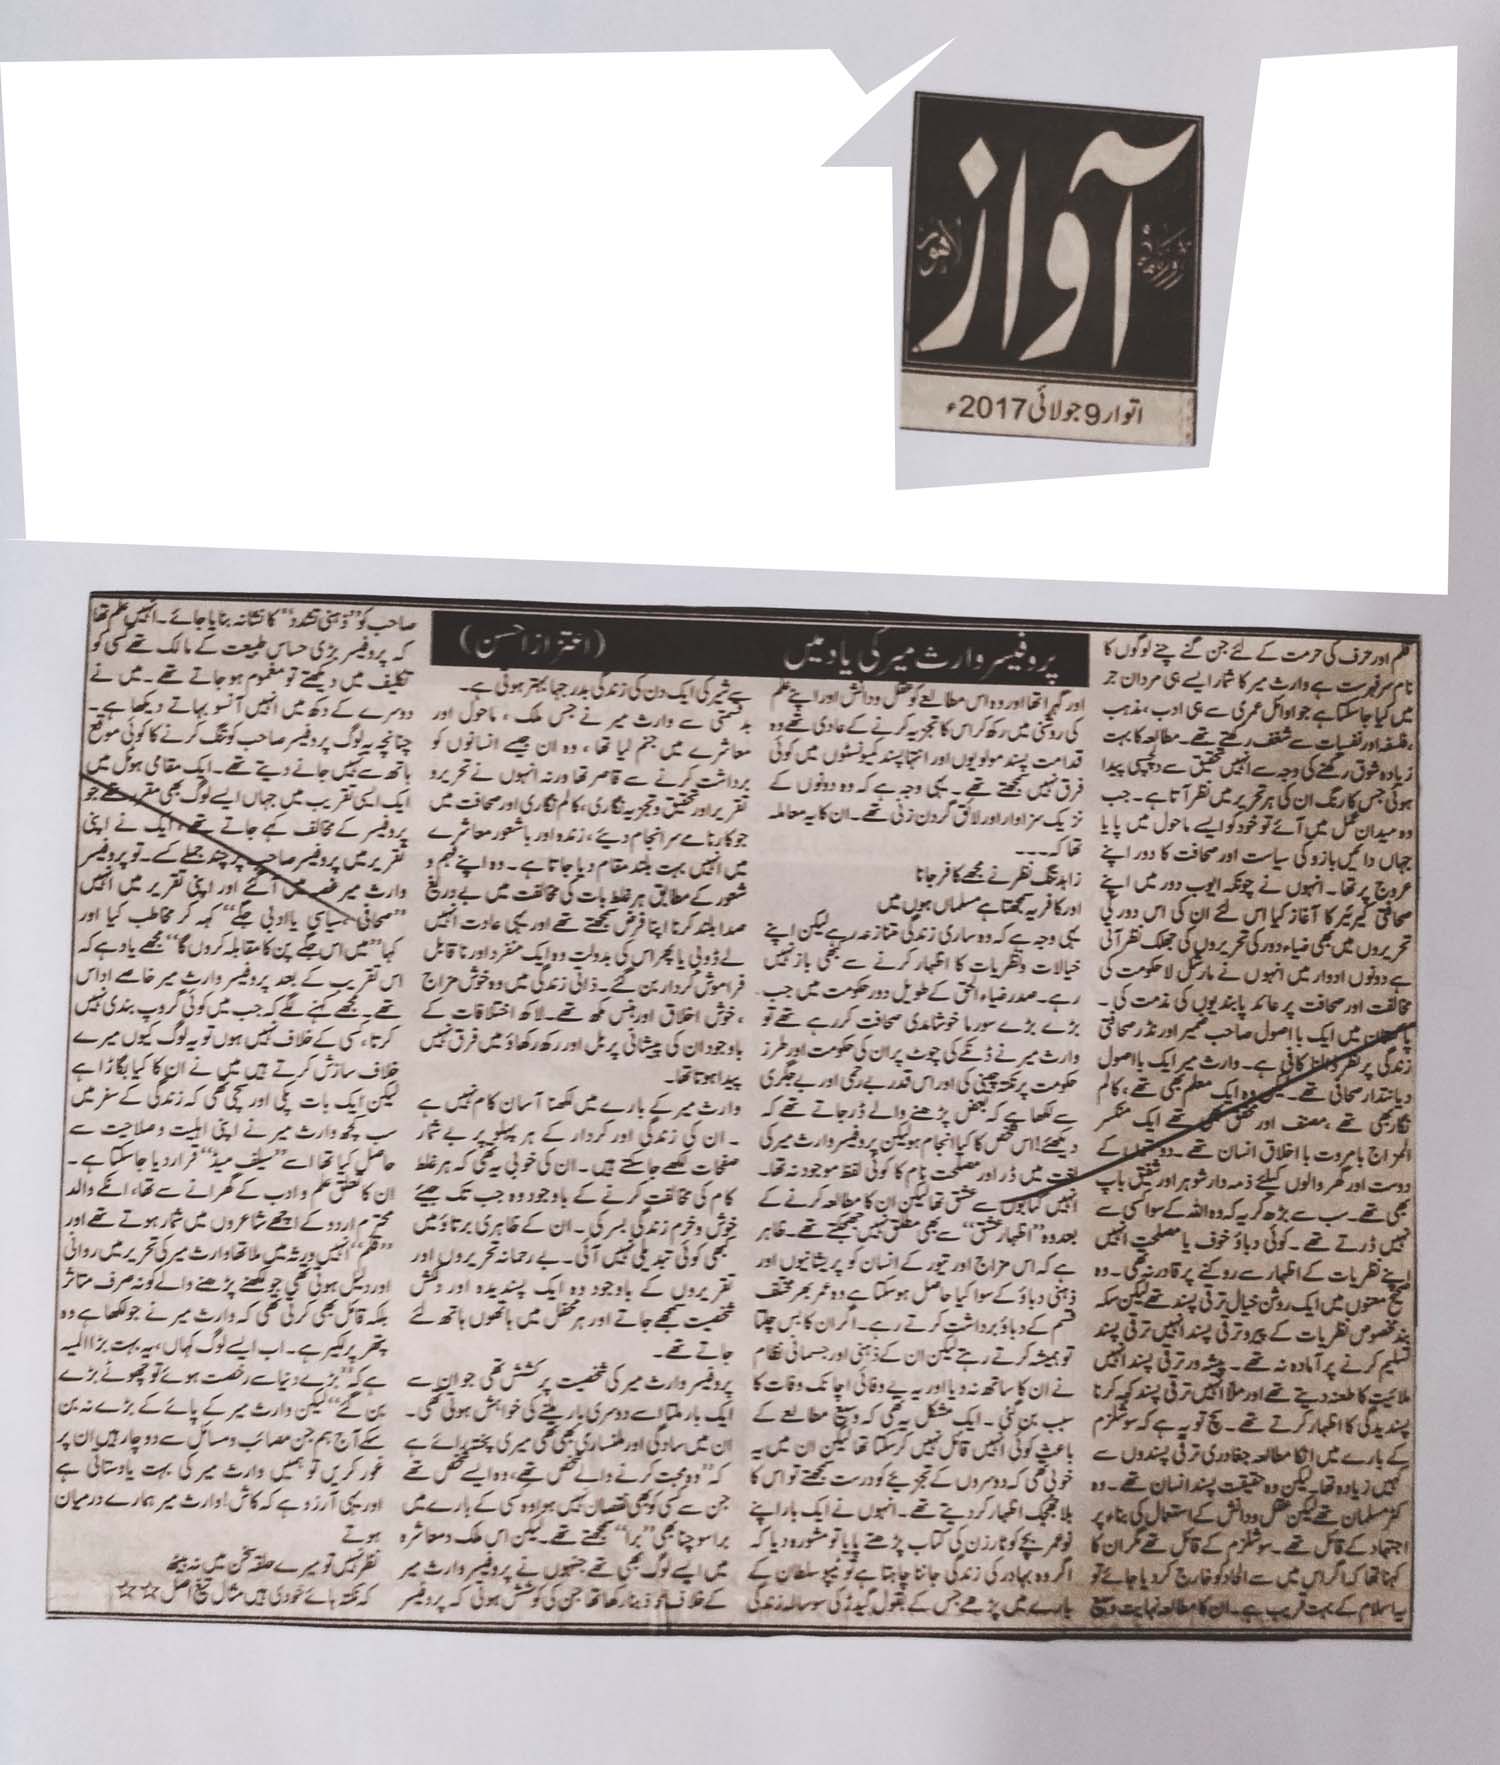 روزنامہ
آواز
لاہور
اتوار 9 جولائی 2017ء
پروفیسر وارث میر کی یاد میں
(اعتزاز احسن)
قلم اور حرف کی حرمت کے لئے جن گنے چنے لوگوں کا
نام سرفہرست ہے وارث میر کا شمار ایسے ہی مردان حر
میں کیا جا سکتا ہے جو اوائل عمری سے ہی ادب، مذہب
، فلسفہ اور نفسیات سے شغف رکھتے تھے۔ مطالعہ کا بہت
زیادہ شوق رکھنے کی وجہ سے انہیں تحقیق سے دلچسپی پیدا
ہوئی جس کا رنگ ان کی ہر تحریر میں نظر آتا ہے۔ جب
وہ میدان عمل میں آئے تو خود کو ایسے ماحول میں پایا
جہاں دائیں بازو کی سیاست اور صحافت کا دور اپنے
عروج پر تھا۔ انہوں نے چونکہ ایوب دور میں اپنے
صحافتی کیرئیر کا آغاز کیا اس لئے ان کی اس دور کی
تحریروں میں بھی ضیاء دور کی تحریروں کی جھلک نظر آتی
ہے دونوں ادوار میں انہوں نے مارشل لا حکومت کی
مخالفت اور صحافت پر عائد پابندیوں کی مذمت کی۔
پاکستان میں ایک با اصول صاحب ضمیر اور نڈر صحافتی
زندگی پر نظر ڈالنا کافی ہے۔ وارث میر ایک با اصول
دیانتدار صحافی تھے۔ لیکن وہ ایک معلم بھی تھے، کالم
نگار بھی تھے، مصنف اور محقق بھی تھے ایک منکسر
المزاج با مروت با اخلاق انسان تھے۔ دوستوں کے
دوست اور گھر والوں کیلئے ذمہ دار شوہر اور شفیق باپ
بھی تھے۔ سب سے بڑھ کر یہ کہ وہ اللہ کے سوا کسی سے
نہیں ڈرتے تھے۔ کوئی دباؤ خوف یا مصلحت انہیں
اپنے نظریات کے اظہار سے روکنے پر قادر نہ تھی۔ وہ
صحیح معنوں میں ایک روشن خیال ترقی پسند تھے لیکن سکہ
بند مخصوص نظریات کے پیرو ترقی پسند انہیں ترقی پسند
تسلیم کرنے پر آمادہ نہ تھے۔ پیشہ ور ترقی پسند انہیں
ملائیت کا طعنہ دیتے تھے اور ملا انہیں ترقی پسند کہہ کر اپنا
پسندیدگی کا اظہار کرتے تھے۔ سچ تو یہ ہے کہ سوشلزم
کے بارے میں انکا مطالعہ جغادری ترقی پسندوں سے
کہیں زیادہ تھا۔ لیکن وہ حقیقت پسند انسان تھے۔ وہ
کٹر مسلمان تھے لیکن عقل و دانش کے استعمال کی بناء پر
اجتہاد کے قائل تھے۔ سوشلزم کے قائل تھے مگر ان کا
کہنا تھا کہ اگر اس میں سے الحاد کو خارج کر دیا جائے تو
یہ اسلام کے بہت قریب ہے۔ ان کا مطالعہ نہایت وسیع
اور گہرا تھا اور وہ اس مطالعے کو عقل و دانش اور اپنے علم
کی روشنی میں رکھ کر اس کا تجزیہ کرنے کے عادی تھے وہ
قدامت پسند مولویوں اور انتہا پسند کمیونسٹوں میں کوئی
فرق نہیں سمجھتے تھے۔ یہی وجہ ہے کہ وہ دونوں کے
نزدیک سزاوار اور لائق گردن زنی تھے۔ ان کا یہ معاملہ
تھا کہ۔۔۔
زاہد تنگ نظر نے مجھے کافر جانا
اور کافر یہ سمجھتا ہے مسلماں ہوں میں
یہی وجہ ہے کہ وہ ساری زندگی متنازعہ رہے لیکن اپنے
خیالات و نظریات کا اظہار کرنے سے کبھی باز نہیں
رہے۔ صدر ضیاء الحق کے طویل دور حکومت میں جب
بڑے بڑے سورما خوشامدی صحافت کر رہے تھے تو
وارث میر نے ڈنکے کی چوٹ پر ان کی حکومت اور طرز
حکومت پر نکتہ چینی کی اور اس قدر بے رحمی اور بے جگری
سے لکھا ہے کہ بعض پڑھنے والے ڈر جاتے تھے کہ
دیکھئے! اس شخص کا کیا انجام ہو لیکن پروفیسر وارث میر کی
لغت میں ڈر اور مصلحت نام کا کوئی لفظ موجود نہ تھا۔
انہیں کتابوں سے عشق تھا لیکن ان کا مطالعہ کرنے کے
بعد وہ ”اظہار عشق“ سے بھی مطلق نہیں جھجکتے تھے۔ ظاہر
ہے کہ اس مزاج اور تیور کے انسان کو پریشانیوں اور
ذہنی دباؤ کے سوا کیا حاصل ہو سکتا ہے وہ عمر بھر مختلف
قسم کے دباؤ برداشت کرتے رہے۔ اگر ان کا بس چلتا
تو ہمیشہ کرتے رہتے لیکن ان کے ذہنی اور جسمانی نظام
نے ان کا ساتھ نہ دیا اور یہ بے وفائی اچانک وفات کا
سبب بن گئی۔ ایک مشکل یہ تھی کہ وسیع مطالعے کے
باعث کوئی انہیں قائل نہیں کر سکتا تھا لیکن ان میں یہ
خوبی تھی کہ دوسروں کے تجزیے کو درست سمجھتے تو اس کا
بلا جھجک اظہار کر دیتے تھے۔ انہوں نے ایک بار اپنے
نو عمر بچے کو ٹارزن کی کتاب پڑھتے پایا تو مشورہ دیا کہ
اگر وہ بہادر کی زندگی جاننا چاہتا ہے تو ٹیپو سلطان کے
بارے میں پڑھے جس کے بقول گیدڑ کی سو سالہ زندگی
سے شیر کی ایک دن کی زندگی بدرجہا بہتر ہوتی ہے۔
بدقسمتی سے وارث میر نے جس ملک، ماحول اور
معاشرے میں جنم لیا تھا، وہ ان جیسے انسانوں کو
برداشت کرنے سے قاصر تھا ورنہ انہوں نے تحریر و
تقریر اور تحقیق و تجزیہ نگاری، کالم نگاری اور صحافت میں
جو کارنامے سرانجام دیئے، زندہ اور باشعور معاشرے
میں انہیں بہت بلند مقام دیا جاتا ہے۔ وہ اپنے فہم و
شعور کے مطابق ہر غلط بات کی مخالفت میں بے دریغ
صدا بلند کرنا اپنا فرض سمجھتے تھے اور یہی عادت انہیں
لے ڈوبی یا پھر اس کی بدولت وہ ایک منفرد اور ناقابل
فراموش کردار بن گئے۔ ذاتی زندگی میں وہ خوش مزاج
، خوش اخلاق اور ہنس مکھ تھے۔ لاکھ اختلافات کے
باوجود ان کی پیشانی پر بل اور رکھ رکھاؤ میں فرق نہیں
پیدا ہوتا تھا۔
وارث میر کے بارے میں لکھنا آسان کام نہیں ہے
۔ ان کی زندگی اور کردار کے ہر پہلو پر بے شمار
صفحات لکھے جا سکتے ہیں۔ ان کی خوبی یہ تھی کہ ہر غلط
کام کی مخالفت کرنے کے باوجود وہ جب تک جیئے
خوش و خرم زندگی بسر کی۔ ان کے ظاہری برتاؤ میں
کبھی کوئی تبدیلی نہیں آئی۔ بے رحمانہ تحریروں اور
تقریروں کے باوجود وہ ایک پسندیدہ اور دلکش
شخصیت سمجھے جاتے اور ہر محفل میں ہاتھوں ہاتھ لئے
جاتے تھے۔
پروفیسر وارث میر کی شخصیت پر کشش تھی جو ان سے
ایک بار ملتا اسے دوسری بار ملنے کی خواہش ہوتی تھی۔
ان میں سادگی اور ملنساری بھی تھی میری پختہ رائے ہے
کہ ”وہ محبت کرنے والے شخص تھے، وہ ایسے شخص تھے
جن سے کسی کو بھی نقصان نہیں ہوا وہ کسی کے بارے میں
برا سوچنا بھی ”برا“ سمجھتے تھے۔ لیکن اس ملک و معاشرہ
میں ایسے لوگ بھی تھے جنہوں نے پروفیسر وارث میر
کے خلاف محاذ بنا رکھا تھا جن کی کوشش ہوتی کہ پروفیسر
صاحب کو ”ذہنی تشدد“ کا نشانہ بنایا جائے۔ انہیں علم تھا
کہ پروفیسر بڑی حساس طبیعت کے مالک تھے کسی کو
تکلیف میں دیکھتے تو مغموم ہو جاتے تھے۔ میں نے
دوسرے کے دکھ میں انہیں آنسو بہاتے دیکھا ہے۔
چنانچہ یہ لوگ پروفیسر صاحب کو تنگ کرنے کا کوئی موقع
ہاتھ سے نہیں جانے دیتے تھے۔ ایک مقامی ہوٹل میں
ایک ایسی تقریب میں جہاں ایسے لوگ بھی مقرر تھے جو
پروفیسر کے مخالف کہے جاتے تھے، ایک نے اپنی
تقریر میں پروفیسر صاحب پر چند جملے کسے۔ تو پروفیسر
وارث میر غصے میں آگئے اور اپنی تقریر میں انہیں
”صحافی سیاسی یا ادبی جگے“ کہہ کر مخاطب کیا اور
کہا ”میں اس جگے پن کا مقابلہ کروں گا“ مجھے یاد ہے کہ
اس تقریب کے بعد پروفیسر وارث میر خاصے اداس
تھے۔ مجھے کہنے لگے کہ جب میں کوئی گروپ بندی نہیں
کرتا، کسی کے خلاف نہیں ہوں تو یہ لوگ کیوں میرے
خلاف سازش کرتے ہیں میں نے ان کا کیا بگاڑا ہے
لیکن ایک بات پکی اور سچی تھی کہ زندگی کے سفر میں
سب کچھ وارث میر نے اپنی اہلیت و صلاحیت سے
حاصل کیا تھا اسے ”سیلف میڈ“ قرار دیا جا سکتا ہے۔
ان کا تعلق علم و ادب کے گھرانے سے تھا، انکے والد
محترم اردو کے اچھے شاعروں میں شمار ہوتے تھے اور
”قلم“ انہیں ورثہ میں ملا تھا وارث میر کی تحریر میں روانی
اور دلیل ہوتی تھی جو لکھنے پڑھنے والے کو نہ صرف متاثر
بلکہ قائل بھی کرتی تھی کہ وارث میر نے جو لکھا ہے وہ
پتھر پر لکیر ہے۔ اب ایسے لوگ کہاں، یہ بہت بڑا المیہ
ہے کہ ”بڑے دنیا سے رخصت ہوئے تو چھوٹے بڑے
بن گئے“ لیکن وارث میر کے پائے کے بڑے نہ بن
سکے آج ہم جن مصائب و مسائل سے دوچار ہیں ان پر
غور کریں تو ہمیں وارث میر کی بہت یاد ستاتی ہے
اور یہی آرزو ہے کہ کاش! وارث میر ہمارے درمیان
ہوتے
نظر نہیں تو میرے حلقہ سخن میں نہ بیٹھ
کہ نکتہ ہائے خودی ہیں مثال تیغ اصیل ☆☆